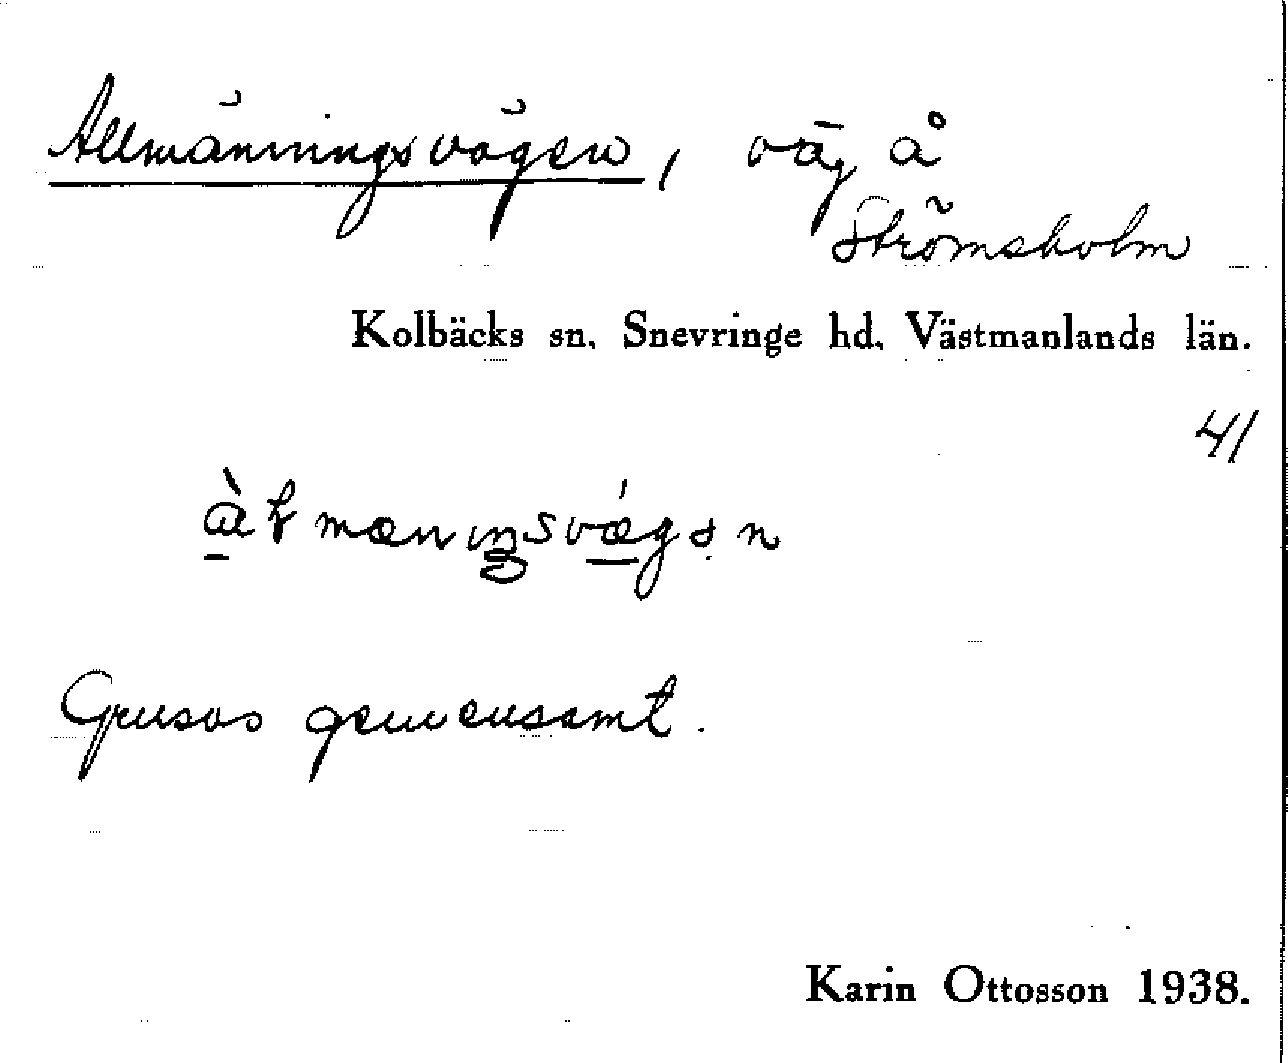 Allmänningsvägen, väg å
Strömsholm
Kolbäcks sn, Snevringe hd, Västmanlands län.
41
àlmænıŋsvǽgən
Grusas gemensamt.
Karin Ottosson 1938.